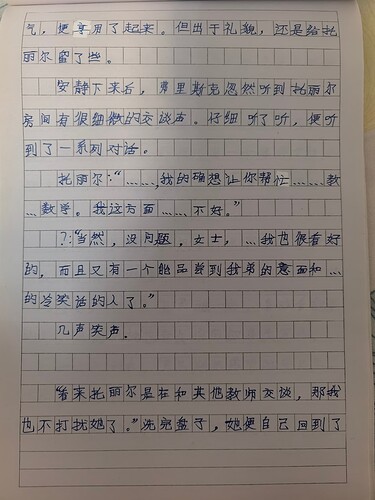 气，便享用了起来。但出于礼貌，还是给托
丽尔留了些。
安静下来后，弗里斯克忽然听到托丽尔
房间有很细微的交谈声。仔细听了听，便听
到了一系列对话。
托丽尔：“……，我的确想让你帮忙……教
…数学。我这方面……不好。”
?：“当然，没问题，女士，…我也很看好
的，而且又有一个能品尝到我弟的意面和…
的冷笑话的人了。”
几声笑声．
“看来托丽尔是在和其他教师交谈，那我
也不打扰她了。”洗完盘子，她便自己回到了